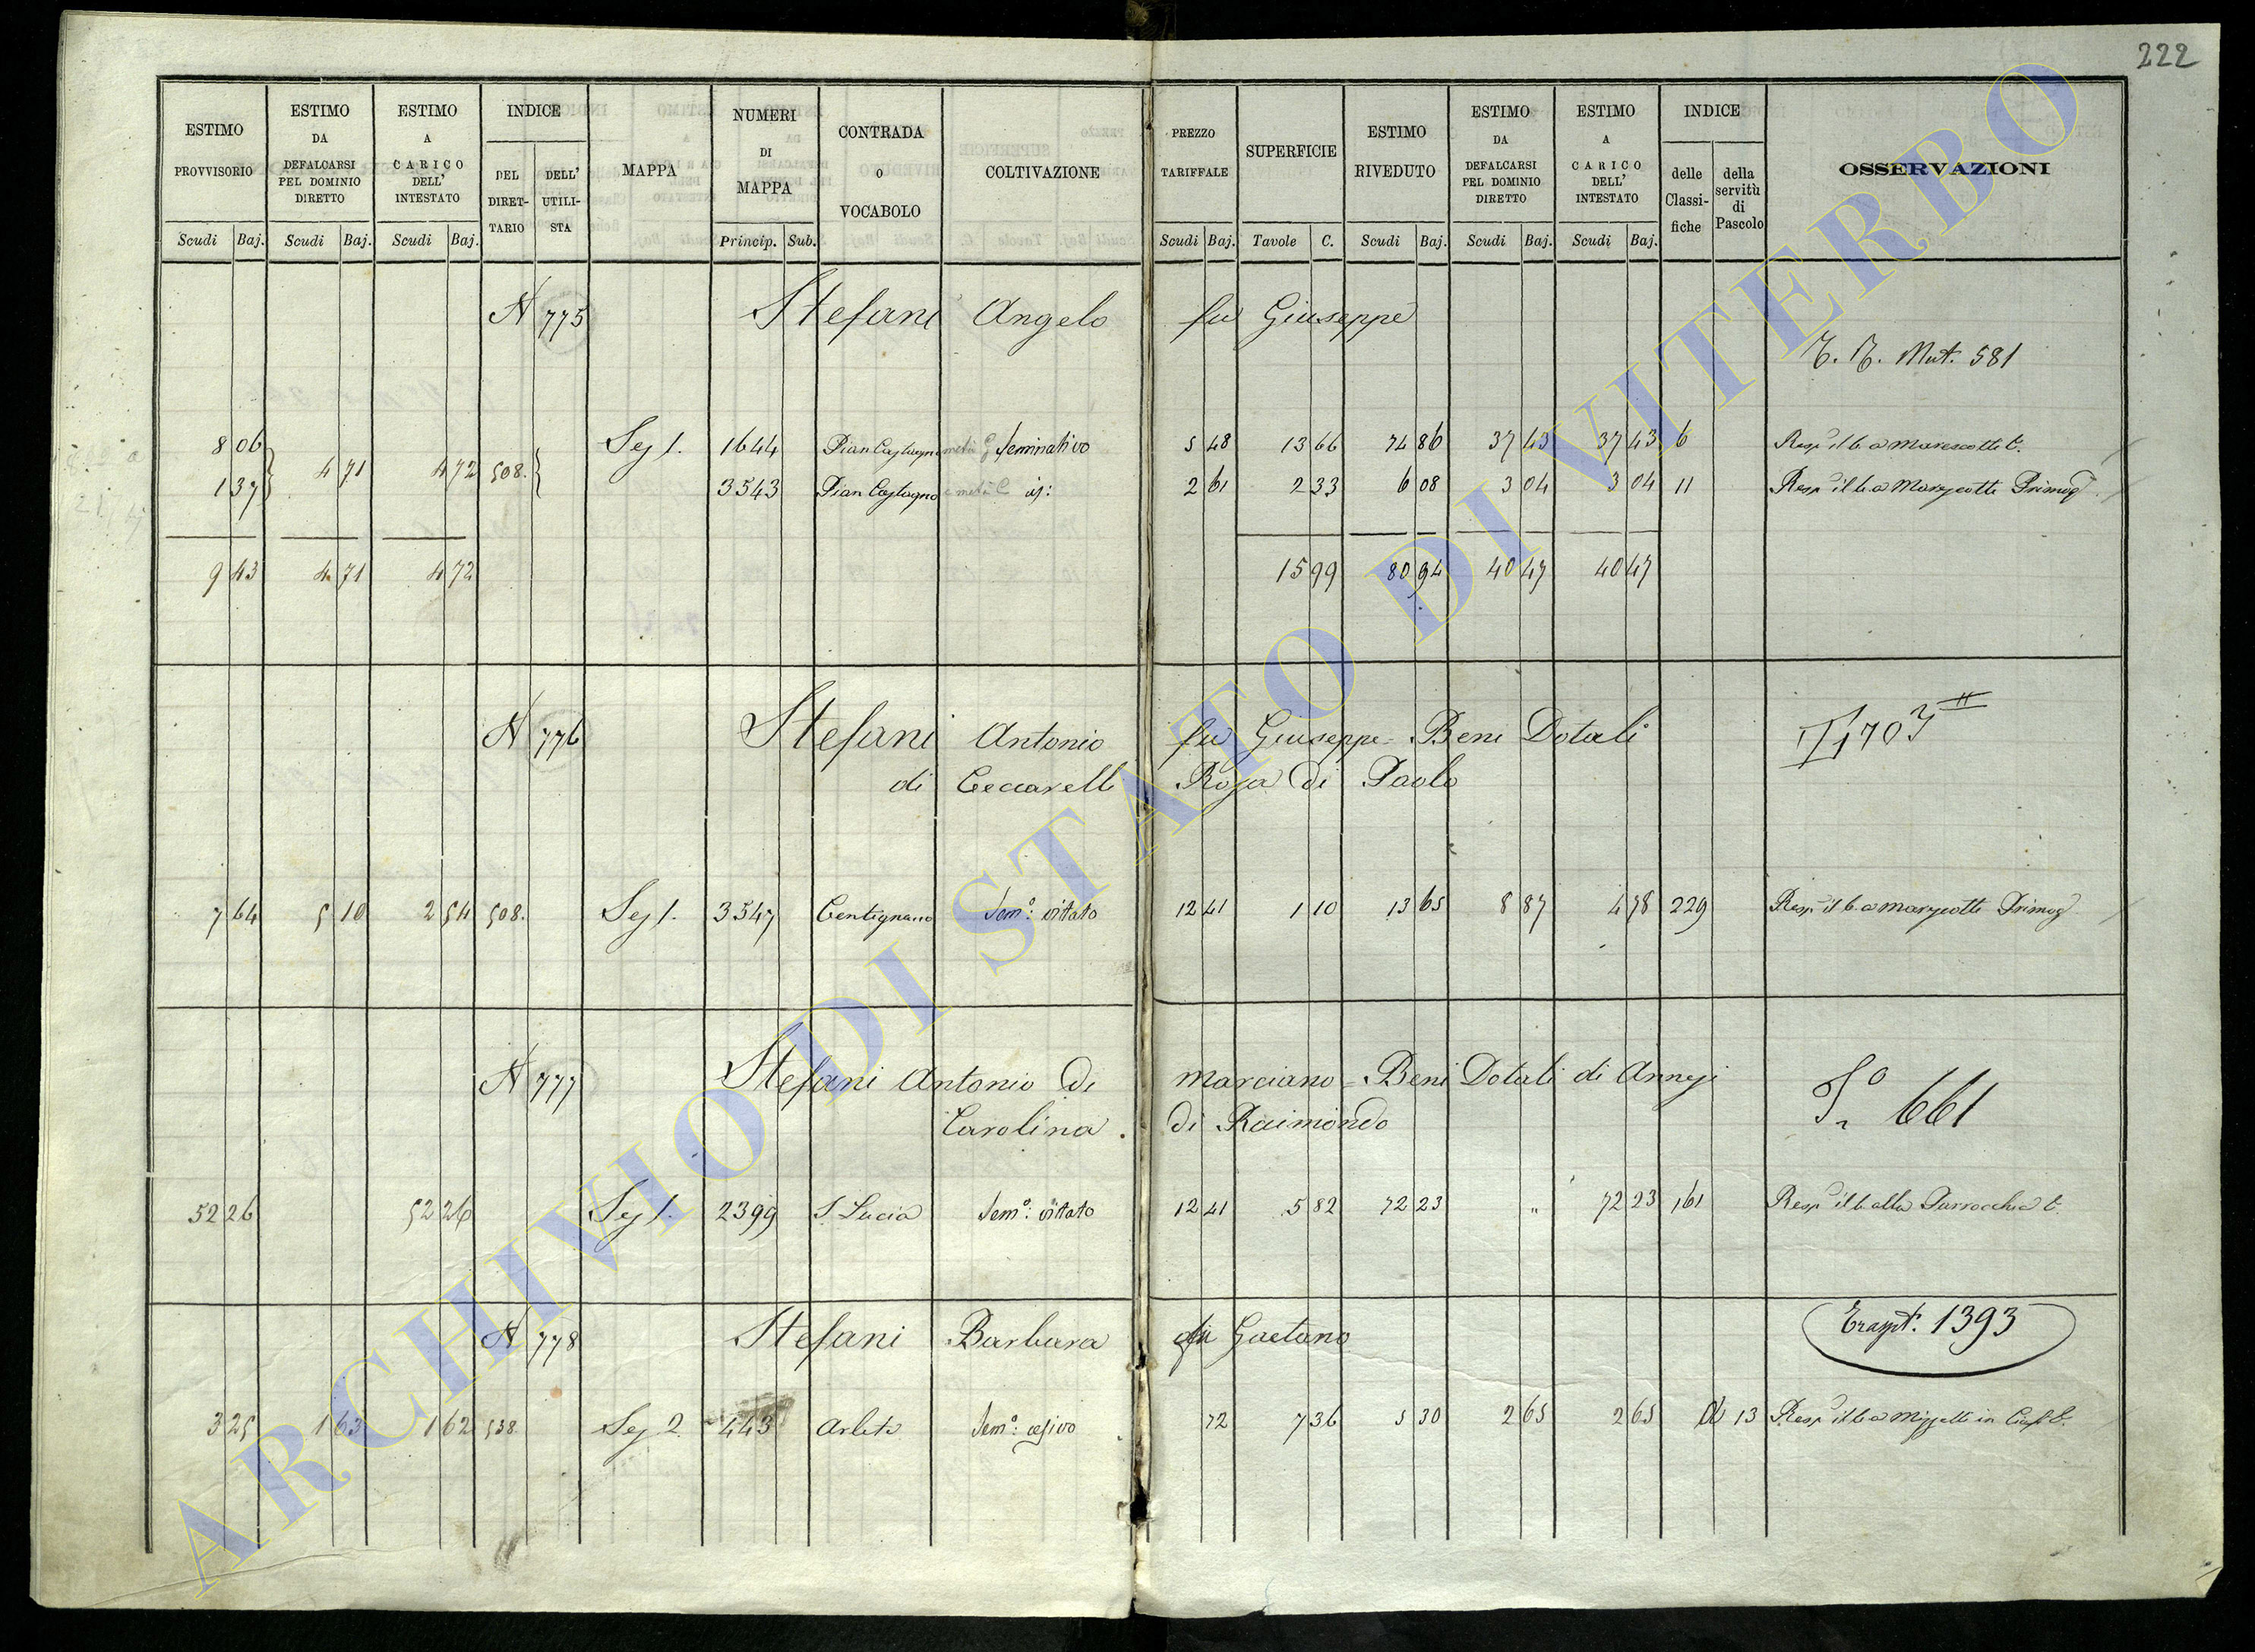 222
ESTIMO PROVVISORIO Scudi Baj.
ESTIMO DA DEFALCARSI PEL DOMINIO DIRETTO Scudi Baj.
ESTIMO A CARICO DELL' INTESTATO Scudi Baj.
INDICE DEL DIRETTARIO DELL' UTILISTA
MAPPA
NUMERI DI MAPPA Princip. Sub.
CONTRADA O VOCABOLO
COLTIVAZIONE
PREZZO TARIFFALE Scudi Baj.
SUPERFICIE Tavole C.
ESTIMO RIVEDUTO Scudi Baj.
ESTIMO DA DEFALCARSI PEL DOMINIO DIRETTO Scudi Baj.
ESTIMO A CARICO DELL' INTESTATO Scudi Baj.
INDICE delle Classifiche della servitù di Pascolo
OSSERVAZIONI
N 775 Stefani Angelo fu Giuseppe
Mut. 581
8 06 Sez 1. 1644 Pian Castagno metà Seminativo 5 48 13 66 74 86 37 43 37 43 6 Resp il 6. a Marescotti
4 71 4 72 508.
1 37 3543 Pian Castagno e metà id: 2 61 2 33 6 08 3 04 3 04 11 Resp il 6 a Marescotti Primog
9 43 4 71 4 72 15 99 80 94 40 47 40 47
N 776 Stefani Antonio fu Giuseppe - Beni Dotali
di Ceccarelli Rosa di Paolo
1703
7 64 5 10 2 54 508. Sez 1. 3547 Centignano Sem.o vitato 12 41 1 10 13 65 8 87 4 78 229 Resp il 6. a Marescotti Primog
N 777 Stefani Antonio di Marciano = Beni Dotali di Annesi
Carolina. di Raimondo
661
52 26 52 26 Sez 1. 2399 S. Lucia Sem.o vitato 12 41 5 82 72 23 " 72 23 161 Resp il 6 alla Parrocchia
N 778 Stefani Barbara fu Gaetano
Trasp.t 1393
3 25 1 63 1 62 538 Sez 2. 443 Arleta Sem.o cesivo 72 7 36 5 30 2 65 2 65 13 Resp il 6 a Mizzelli in
ARCHIVIO DI STATO DI VITERBO